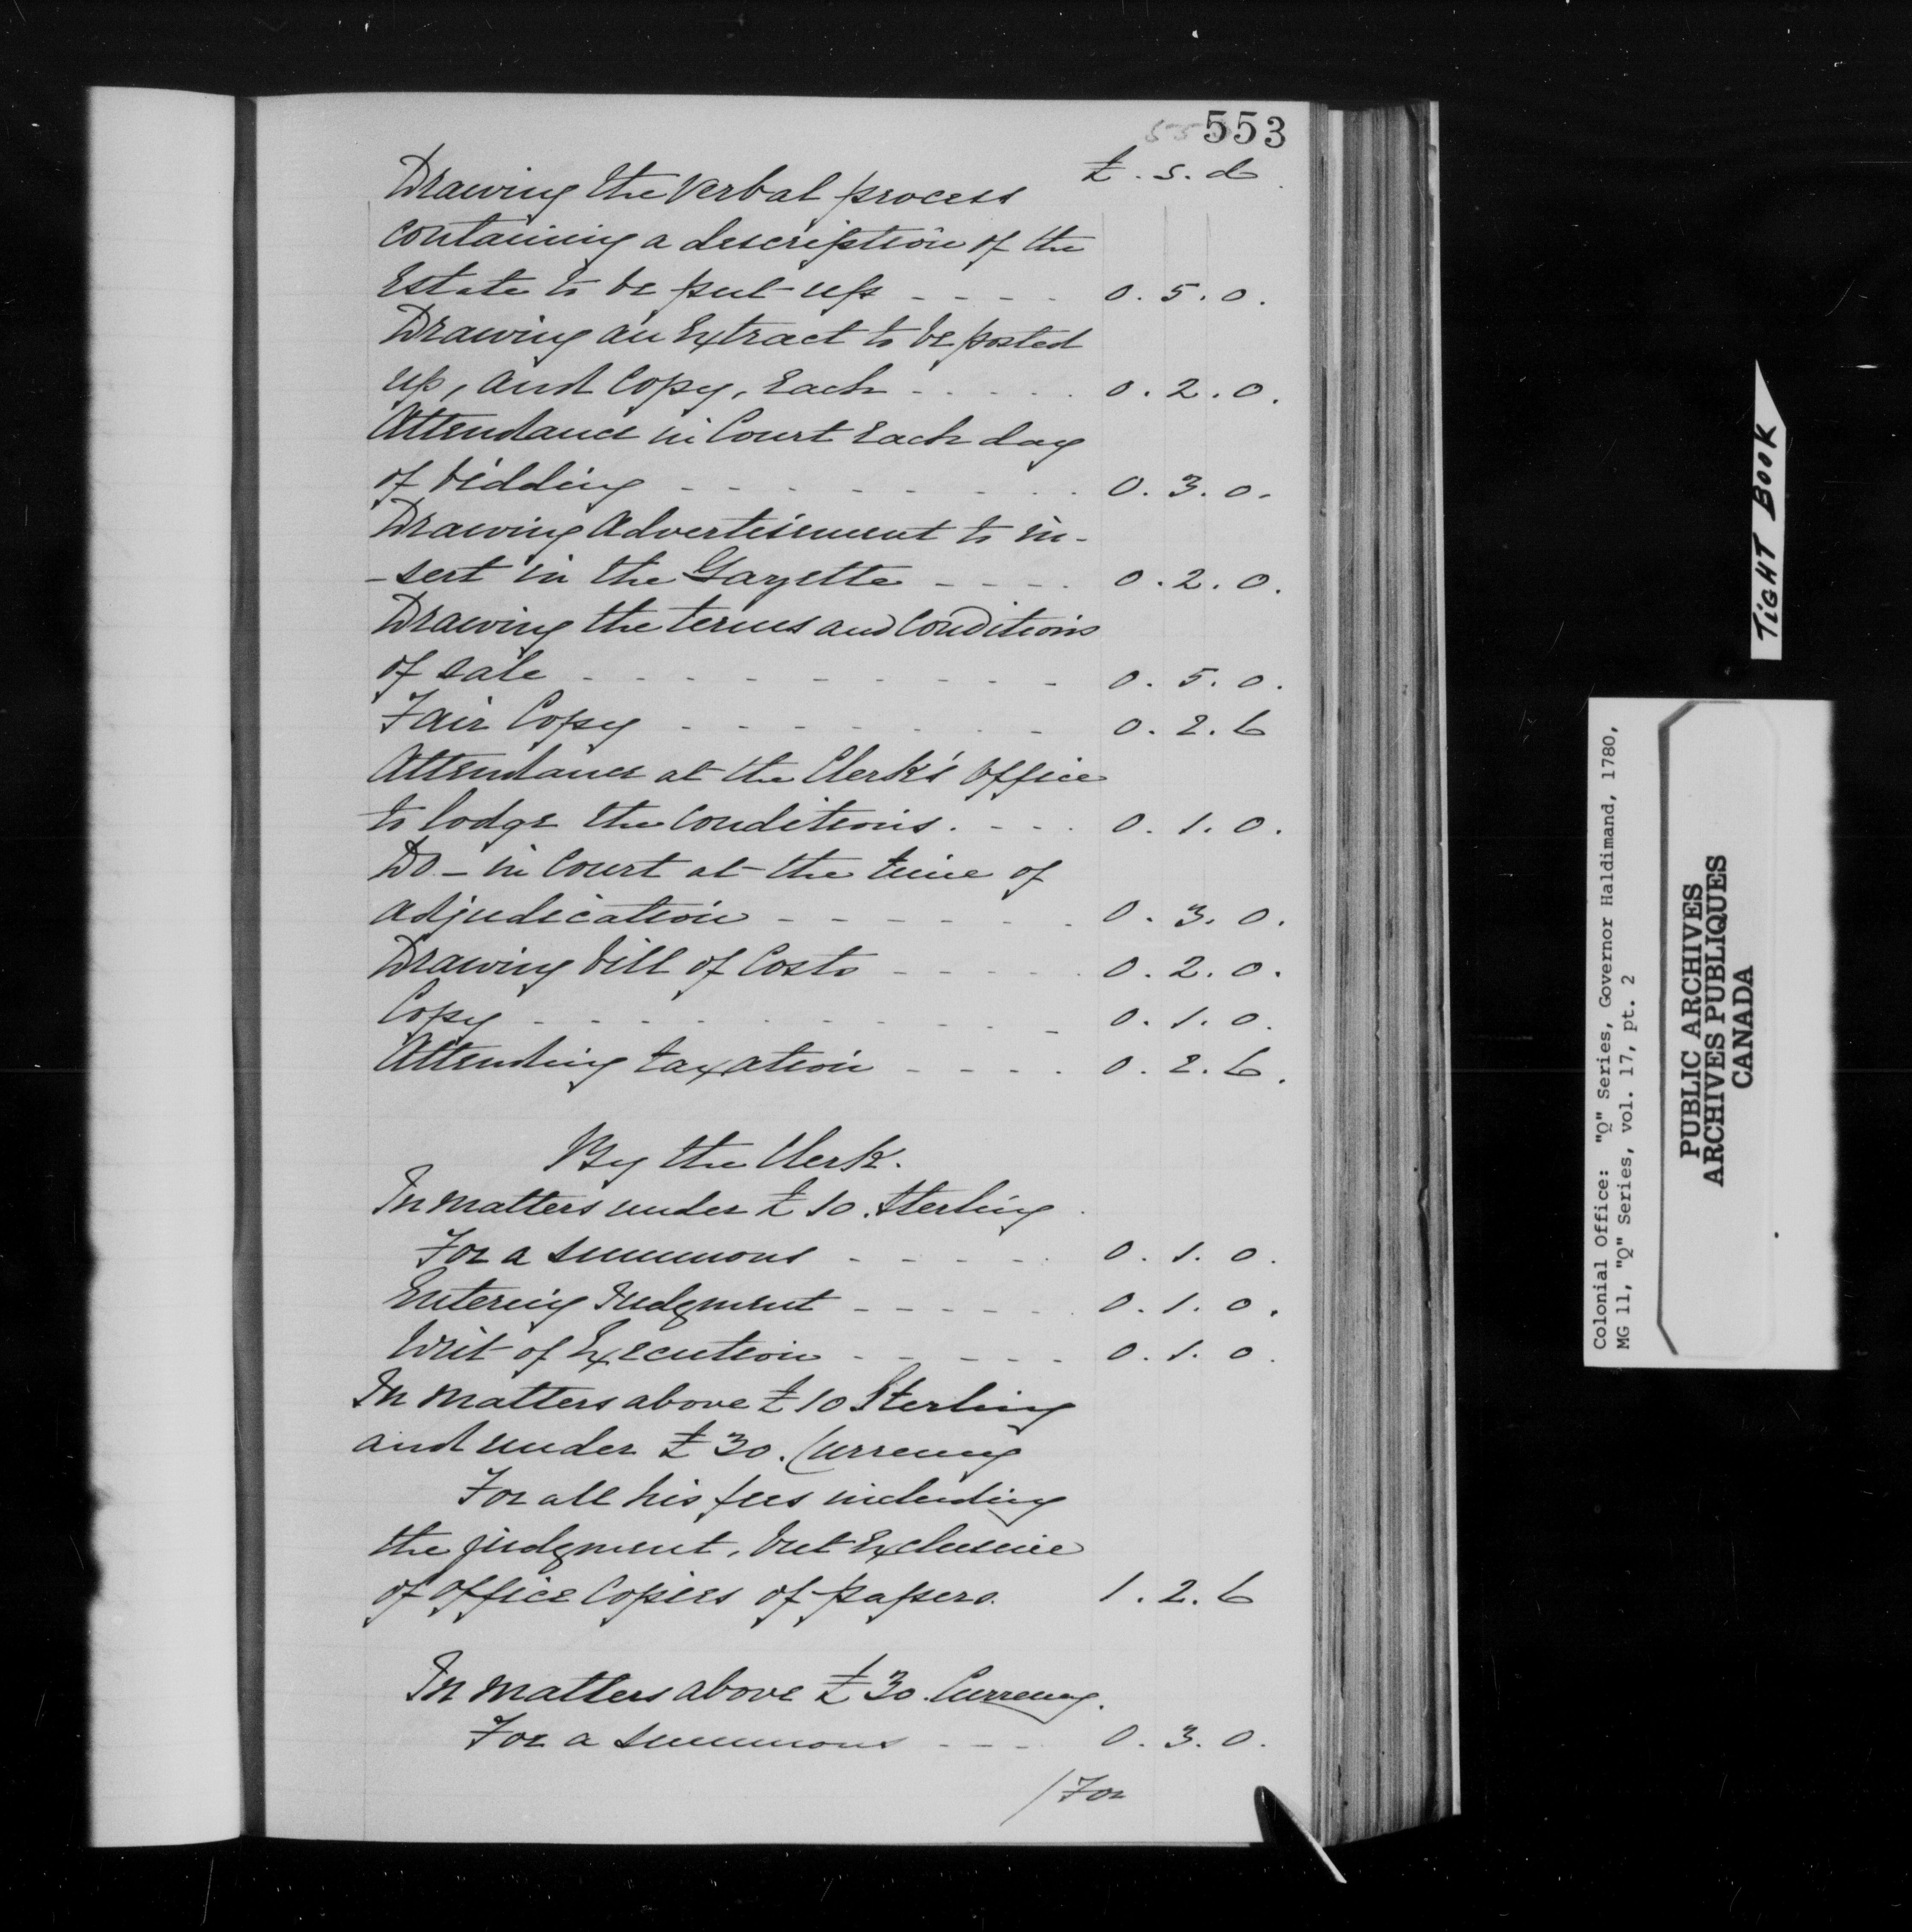 553
£ . s . d
Drawing the verbal process
containing a description of the
Estate to be put up - - - - 0 . 5 . 0 .
Drawing an Extract to be posted
up, and Copy, Each - - - - - 0 . 2 . 0 .
Attendance in Court Each day
of bidding - - - - - - - - 0 . 3 . 0 .
Drawing Advertisement to in-
-sert in the Gazette - - - - 0 . 2 . 0 .
Drawing the terms and Conditions
of sale - - - - - - - - - - 0 . 5 . 0 .
Fair Copy - - - - - - - - 0 . 2 . 6
Attendance at the Clerk's Office
to lodge the Conditions . - - - 0 . 1 . 0 .
Do - in Court at the time of
adjudication - - - - - - - 0 . 3 . 0 .
Drawing bill of Costs - - - - - 0 . 2 . 0 .
Copy - - - - - - - - - - - 0 . 1 . 0 .
Attending taxation - - - - 0 . 2 . 6 .
By the Clerk.
In matters under £ 10 . Sterling
For a summons - - - - - 0 . 1 . 0 .
Entering Judgment - - - - - - 0 . 1 . 0 .
Writ of Execution - - - - - 0 . 1 . 0 .
In matters above £ 10 Sterling
and under £ 30 . Currency
For all his fees including
the judgment, but Exclusive
of Office Copies of papers. 1 . 2 . 6
In matters above £ 30 . Currency.
For a summons - - - 0 . 3 . 0 .
/ For
TIGHT BOOK
Colonial Office: "Q" Series, Governor Haldimand, 1780,
MG 11, "Q" Series, vol. 17, pt. 2
PUBLIC ARCHIVES
ARCHIVES PUBLIQUES
CANADA